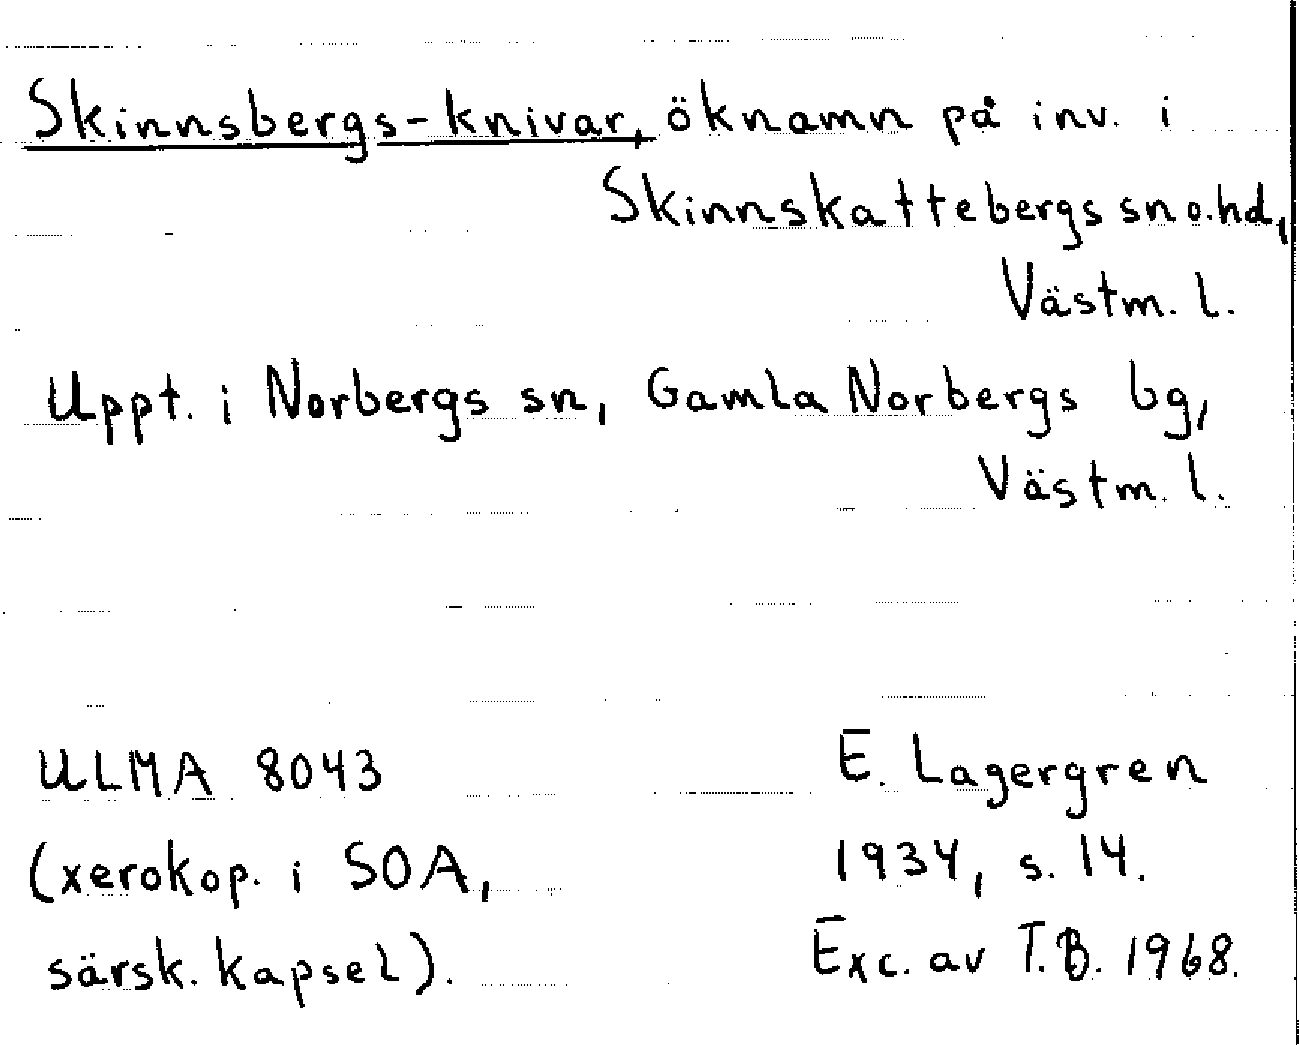 Skinnsbergs-knivar, öknamn på inv. i
Skinnskattebergs sn o. hd,
Västm. l.
Uppt. i Norbergs sn, Gamla Norbergs bg,
Västm. l.
ULMA 8043
(xerokop. i SOA,
särsk. kapsel).
E. Lagergren
1934, s. 14.
Exc. av T.B. 1968.